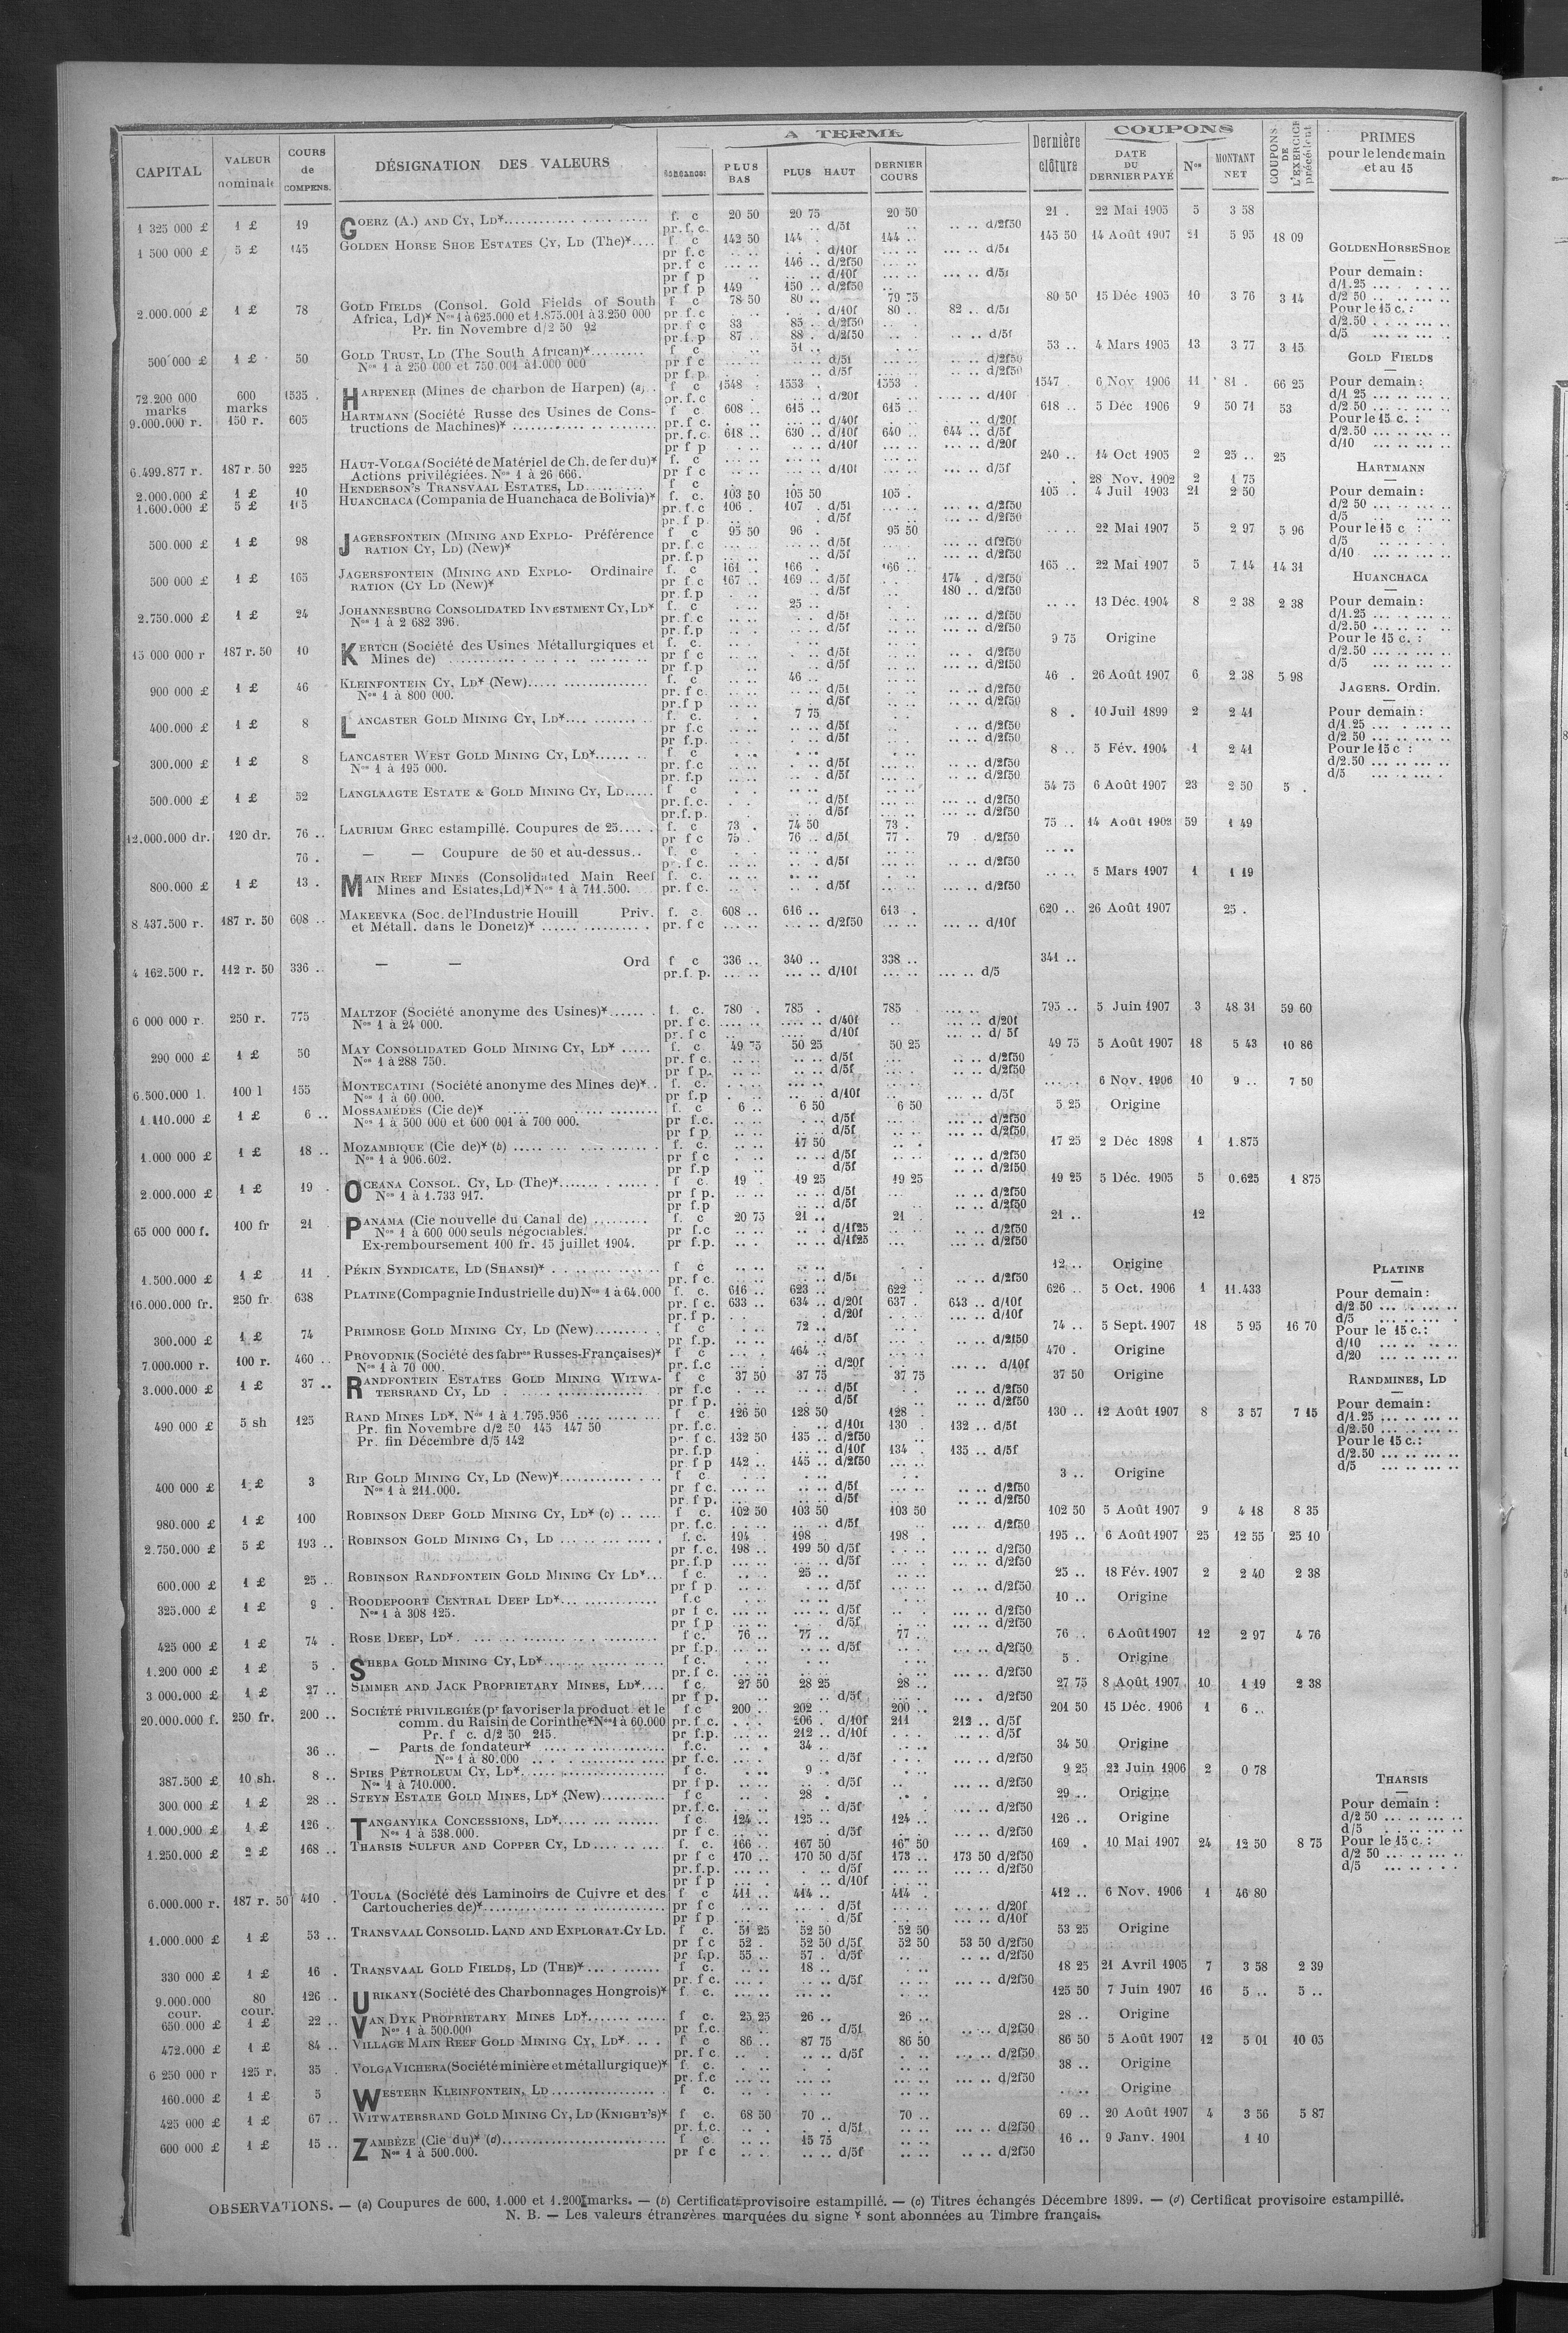 A TERME
COUPONS
CAPITAL
VALEUR nominale
COURS de COMPENS.
DÉSIGNATION DES VALEURS
PLUS BAS
PLUS HAUT
DERNIER COURS
Dernière clôture
DATE DU DERNIER PAYÉ
Nos
MONTANT NET
COUPONS DE L'EXERCICE précédent
PRIMES pour le lendemain et au 15
1 325 000 £ 1 £ 19 GOERZ (A.) AND CY, LD* f. c 20 50 20 75 20 50 21 . 22 Mai 1905 5 3 58
pr. f. c. d/5f d/2f50
1 500 000 £ 5 £ 145 GOLDEN HORSE SHOE ESTATES CY, LD (The)* f c 142 50 144 . 144 .. 145 50 14 Août 1907 21 5 95 18 09
pr f.c d/10f d/5f
pr. f c 146 .. d/2f50
pr f p d/10f d/5f
pr. f p 149 150 .. d/2f50
2.000.000 £ 1 £ 78 GOLD FIELDS (Consol. Gold Fields of South f c 78 50 80 .. 79 75 80 50 15 Déc 1905 10 3 76 3 14
Africa, Ld)* Nos 1 à 625.000 et 1.875.001 à 3.250 000 pr f.c d/10f 80 .. 82 .. d/5f
Pr. fin Novembre d/2 50 92 pr f c 83 85 .. d/2f50
pr.f.p 87 88 . d/2f50 d/5f
500 000 £ 1 £ 50 GOLD TRUST, LD (The South African)* f c 51 .. 53 .. 4 Mars 1905 13 3 77 3 15
Nos 1 à 250 000 et 750.001 à 1.000 000 pr f c d/5f d/2f50
pr f p d/5f d/2f50
72.200 000 marks 600 marks 1535 . HARPENER (Mines de charbon de Harpen) (a) f c 1548 . 1553 . 1553 . 1547 . 6 Nov 1906 11 81 . 66 25
pr. f.c d/20f d/10f
9.000.000 r. 150 r. 605 HARTMANN (Société Russe des Usines de Cons- f c 608 .. 615 .. 615 . 618 .. 5 Déc 1906 9 50 71 53
tructions de Machines)* pr.f c. d/40f d/20f
pr. f.c. 618 .. 630 .. d/10f 640 .. 644 .. d/5f
pr f p d/10f d/20f
6.499.877 r. 187 r. 50 225 HAUT-VOLGA (Société de Matériel de Ch. de fer du)* f. c 240 .. 14 Oct 1905 2 25 .. 25
Actions privilégiées. Nos 1 à 26 666. pr f c d/10f d/5f
2.000.000 £ 1 £ 10 HENDERSON'S TRANSVAAL ESTATES, LD f c 28 Nov. 1902 2 1 75
1.600.000 £ 5 £ HUANCHACA (Compania de Huanchaca de Bolivia)* f. c. 103 50 105 50 105 . 105 .. 4 Juil 1903 21 2 50
pr. f.c 106 . 107 . d/5f d/2f50
pr. f p. d/5f d/2f50
500.000 £ 1 £ 98 JAGERSFONTEIN (MINING AND EXPLO- Préférence f c 95 50 96 . 95 50 22 Mai 1907 5 2 97 5 96
RATION CY, LD) (New)* pr. f. c d/5f d/2f50
pr. f. p d/5f d/2f50
500 000 £ 1 £ 165 JAGERSFONTEIN (MINING AND EXPLO- Ordinaire f. c 161 .. 166 . 166 .. 165 .. 22 Mai 1907 5 7 14 14 31
RATION (CY LD (New)* pr f c 167 .. 169 .. d/5f 174 . d/2f50
pr. f.p d/5f 180 .. d/2f50
2.750.000 £ 1 £ 24 JOHANNESBURG CONSOLIDATED INVESTMENT CY, LD* f. c 25 .. 13 Déc. 1904 8 2 38 2 38
Nos 1 à 2 682 396. pr. f. c d/5f d/2f50
pr. f.p d/5f d/2f50
15 000 000 r 187 r. 50 10 KERTCH (Société des Usines Métallurgiques et f. c. 9 75 Origine
Mines de) pr f c d/5f d/2f50
pr f.p d/5f d/2f50
900 000 £ 1 £ 46 KLEINFONTEIN CY, LD* (New) f. c 46 .. 46 . 26 Août 1907 6 2 38 5 98
Nos 1 à 800 000. pr. f c. d/5f d/2f50
pr. f p d/5f d/2f50
400.000 £ 1 £ 8 LANCASTER GOLD MINING CY, LD* f. c. 7 75 8 . 10 Juil 1899 2 2 41
pr f.c d/5f d/2f50
pr f.p. d/5f d/2f50
300.000 £ 1 £ 8 LANCASTER WEST GOLD MINING CY, LD* f c 8 .. 5 Fév. 1904 1 2 41
Nos 1 à 195 000. pr. f.c d/5f d/2f50
pr. f.p d/5f d/2f50
500.000 £ 1 £ 52 LANGLAAGTE ESTATE & GOLD MINING CY, LD f c 54 75 6 Août 1907 23 2 50 5 .
pr. f. c. d/5f d/2f50
pr.f.p. d/5f d/2f50
12.000.000 dr. 120 dr. 76 .. LAURIUM GREC estampillé. Coupures de 25 f. c 73 . 74 50 73 . 75 .. 14 Août 59 1 49
pr f c 75 . 76 .. d/5f 77 . 79 d/2f50
76 . — — Coupure de 50 et au-dessus.. f. c
pr. f c. d/5f d/2f50
800.000 £ 1 £ 13 . MAIN REEF MINES (Consolidated Main Reef f. c. 5 Mars 1907 1 1 19
Mines and Estates, Ld)* Nos 1 à 711.500. pr. f c. d/5f d/2f50
8 437.500 r. 187 r. 50 608 .. MAKEEVKA (Soc. de l'Industrie Houill Priv. f. c. 608 .. 616 .. 613 . 620 .. 26 Août 1907 25 .
et Métall. dans le Donetz)* pr. f c d/2f50 d/10f
4 162.500 r. 112 r. 50 336 .. — — Ord f c 336 .. 340 .. 338 .. 341 ..
pr.f. p. d/10f d/5
6 000 000 r. 250 r. 775 MALTZOF (Société anonyme des Usines)* f. c. 780 . 785 . 785 795 .. 5 Juin 1907 3 48 31 59 60
Nos 1 à 24 000. pr. f c. d/40f d/20f
pr. f c d/10f d/ 5f
290 000 £ 1 £ 50 MAY CONSOLIDATED GOLD MINING CY, LD* f. c. 49 75 50 25 50 25 49 75 5 Août 1907 18 5 43 10 86
Nos 1 à 288 750. pr. f c. d/5f d/2f50
pr f p.. d/5f d/2f50
6.500.000 l. 100 l 155 MONTECATINI (Société anonyme des Mines de)* f. c. 6 Nov. 1906 10 9 .. 7 50
Nos 1 à 60 000. pr f.p d/10f d/5f
1.110.000 £ 1 £ 6 .. MOSSAMÉDÈS (Cie de)* f. c 6 .. 6 50 6 50 5 25 Origine
Nos 1 à 500 000 et 600 001 à 700 000. pr f.c. d/5f d/2f50
pr f p d/5f d/2f50
1.000 000 £ 1 £ 18 .. MOZAMBIQUE (Cie de)* (b) f. c. 17 50 17 25 2 Déc 1898 1 1.875
Nos 1 à 906.602. pr f c d/5f d/2f50
pr f.p d/5f d/2f50
2.000.000 £ 1 £ 19 . OCEANA CONSOL. CY, LD (The)* f c. 19 . 19 25 19 25 19 25 5 Déc. 1905 5 0.625 1 875
Nos 1 à 1.733 917. pr f p. d/5f d/2f50
pr f.p d/5f d/2f50
65 000 000 f. 100 fr 21 PANAMA (Cie nouvelle du Canal de) f. c 20 75 21 .. 21 . 21 .. 12
Nos 1 à 600 000 seuls négociables. pr f.c d/1f25 d/2f50
Ex-remboursement 100 fr. 15 juillet 1904. pr f.p. d/1f25 d/2f50
1.500.000 £ 1 £ 11 . PÉKIN SYNDICATE, LD (SHANSI)* f c 12 .. Origine
pr. f c. d/5f d/2f50
16.000.000 fr. 250 fr 638 PLATINE (Compagnie Industrielle du) Nos 1 à 64.000 f. c. 616 .. 623 .. 622 . 626 .. 5 Oct. 1906 1 11.433
pr. f c. 633 .. 634 .. d/20f 637 . 643 .. d/10f
pr. f p. d/20f d/10f
300.000 £ 1 £ 74 PRIMROSE GOLD MINING CY, LD (New) f c 72 .. 74 .. 5 Sept. 1907 18 5 95 16 70
pr f.p. d/5f d/2f50
7.000.000 r. 100 r. 460 .. PROVODNIK (Société des fabres Russes-Françaises)* f c 464 .. 470 . Origine
Nos 1 à 70 000. pr. f.c d/20f d/10f
3.000.000 £ 1 £ 37 .. RANDFONTEIN ESTATES GOLD MINING WITWA- f c 37 50 37 75 37 75 37 50 Origine
TERSRAND CY, LD pr f.c d/5f d/2f50
pr f p. d/5f d/2f50
490 000 £ 5 sh 125 RAND MINES LD*, Nos 1 à 1.795.956 f c. 126 50 128 50 128 . 130 .. 12 Août 1907 8 3 57 7 15
Pr. fin Novembre d/2 50 145 147 50 pr. f.c. d/10f 130 . 132 .. d/5f
Pr. fin Décembre d/5 142 pr f c. 132 50 135 .. d/2f50
pr. f.p d/10f 134 . 135 .. d/5f
pr f p 142 .. 145 .. d/2f50
400 000 £ 1 £ 3 RIP GOLD MINING CY, LD (New)* f c. 3 .. Origine
Nos 1 à 211.000. pr f c. d/5f d/2f50
pr. f p. d/5f d/2f50
980.000 £ 1 £ 100 ROBINSON DEEP GOLD MINING CY, LD* (c) f c. 102 50 103 50 103 50 102 50 5 Août 1907 9 4 18 8 35
pr. f.c. d/5f d/2f50
2.750.000 £ 5 £ 193 .. ROBINSON GOLD MINING CY, LD f. c. 194 198 . 198 . 195 .. 6 Août 1907 25 12 55 25 10
pr f. c. 198 .. 199 50 d/5f d/2f50
pr. f.p d/5f d/2f50
600.000 £ 1 £ 25 .. ROBINSON RANDFONTEIN GOLD MINING CY LD* f c. 25 .. 25 .. 18 Fév. 1907 2 2 40 2 38
pr f p d/5f d/2f50
325.000 £ 1 £ 9 . ROODEPOORT CENTRAL DEEP LD* f.c 10 .. Origine
Nos 1 à 308 125. pr f c. d/5f d/2f50
pr f p d/5f d/2f50
425 000 £ 1 £ 74 . ROSE DEEP, LD* f c. 76 .. 77 .. 77 .. 76 .. 6 Août 1907 12 2 97 4 76
pr f.p. d/5f d/2f50
1.200 000 £ 1 £ 5 . SHEBA GOLD MINING CY, LD* f c. 5 . Origine
pr. f c. d/2f50
3 000.000 £ 1 £ 27 .. SIMMER AND JACK PROPRIETARY MINES, LD* f c. 27 50 28 25 28 .. 27 75 8 Août 1907 10 1 19 2 38
pr f p. d/5f d/2f50
20.000.000 f. 250 fr. 200 .. SOCIÉTÉ PRIVILEGIÉE (pr favoriser la product. et le f c 200 .. 202 .. 200 .. 201 50 15 Déc. 1906 1 6 ..
comm. du Raisin de Corinthe* Nos 1 à 60.000 pr. f c. 206 . d/10f 211 212 .. d/5f
Pr. f c. d/2 50 215. pr f.p. 212 .. d/10f d/5f
36 .. — Parts de fondateur* f.c. 34 .. 34 50 Origine
Nos 1 à 80.000 pr f.c. d/5f d/2f50
387.500 £ 10 sh. 8 .. SPIES PETROLEUM CY, LD* f c. 9 .. 9 25 22 Juin 1906 2 0 78
Nos 1 à 710.000. pr f p. d/5f d/2f50
300 000 £ 1 £ 28 .. STEYN ESTATE GOLD MINES, LD* (New) f c 28 . 29 .. Origine
pr. f. c. d/5f d/2f50
1.000.900 £ 1 £ 126 .. TANGANYIKA CONCESSIONS, LD* f c 124 .. 125 .. 124 .. 126 .. Origine
Nos 1 à 538.000. pr f c. d/5f d/2f50
1.250.000 £ 2 £ 168 .. THARSIS SULFUR AND COPPER CY, LD f. c. 166 .. 167 50 167 50 169 . 10 Mai 1907 24 12 50 8 75
pr f c 170 .. 170 50 d/5f 173 .. 173 50 d/2f50
pr. f.p. d/5f d/2f50
pr f p d/10f
6.000.000 r. 187 r. 50 410 . TOULA (Société des Laminoirs de Cuivre et des f c 411 .. 414 .. 414 . 412 .. 6 Nov. 1906 1 46 80
Cartoucheries de)* pr f c d/5f d/20f
pr f p d/5f d/10f
1.000.000 £ 1 £ 53 .. TRANSVAAL CONSOLID. LAND AND EXPLORAT. CY LD. f c. 51 25 52 50 52 50 53 25 Origine
pr f c 52 . 52 50 d/5f 52 50 53 50 d/2f50
pr f.p. 55 .. 57 . d/5f d/2f50
330 000 £ 1 £ 16 . TRANSVAAL GOLD FIELDS, LD (THE)* f c. 18 .. 18 25 21 Avril 1905 7 3 58 2 39
pr. f c. d/5f d/2f50
9.000.000 cour. 80 cour. 126 .. URIKANY (Société des Charbonnages Hongrois)* f c. 125 50 7 Juin 1907 16 5 .. 5 ..
650.000 £ 1 £ 22 .. VAN DYK PROPRIETARY MINES LD* f c. 25 25 26 .. 26 .. 28 .. Origine
Nos 1 à 500.000 pr f.c. d/5f d/2f50
472.000 £ 1 £ 84 .. VILLAGE MAIN REEF GOLD MINING CY, LD* f c 86 .. 87 75 86 50 86 50 5 Août 1907 12 5 01 10 05
pr. f c d/5f d/2f50
6 250 000 r 125 r. 35 . VOLGA VICHERA (Société minière et métallurgique)* f c. 38 .. Origine
pr. f.c d/2f50
160.000 £ 1 £ 5 WESTERN KLEINFONTEIN, LD f c. Origine
425 000 £ 1 £ 67 .. WITWATERSRAND GOLD MINING CY, LD (KNIGHT'S)* f c. 68 50 70 .. 70 .. 69 .. 20 Août 1907 4 3 56 5 87
pr. f.c. d/5f d/2f50
600 000 £ 1 £ 15 .. ZAMBÈZE (Cie du)* (d) f c. 15 75 16 .. 9 Janv. 1901 1 10
Nos 1 à 500.000. pr f c d/5f d/2f50
GOLDEN HORSE SHOE
Pour demain :
d/1.25
d/2 50
Pour le 15 c. :
d/2.50
d/5
GOLD FIELDS
Pour demain :
d/1 25
d/2 50
Pour le 15 c. :
d/2.50
d/10
HARTMANN
Pour demain :
d/2 50
d/5
Pour le 15 c :
d/5
d/10
HUANCHACA
Pour demain :
d/1.25
d/2.50
Pour le 15 c. :
d/2.50
d/5
JAGERS. Ordin.
Pour demain :
d/1.25
d/2 50
Pour le 15 c :
d/2.50
d/5
PLATINE
Pour demain :
d/2 50
d/5
Pour le 15 c. :
d/10
d/20
RANDMINES, LD
Pour demain :
d/1.25
d/2.50
Pour le 15 c. :
d/2.50
d/5
THARSIS
Pour demain :
d/2 50
d/5
Pour le 15 c. :
d/2 50
d/5
OBSERVATIONS. — (a) Coupures de 600, 1.000 et 1.200 marks. — (b) Certificat provisoire estampillé. — (c) Titres échangés Décembre 1899. — (d) Certificat provisoire estampillé.
N. B. — Les valeurs étrangères marquées du signe * sont abonnées au Timbre français.